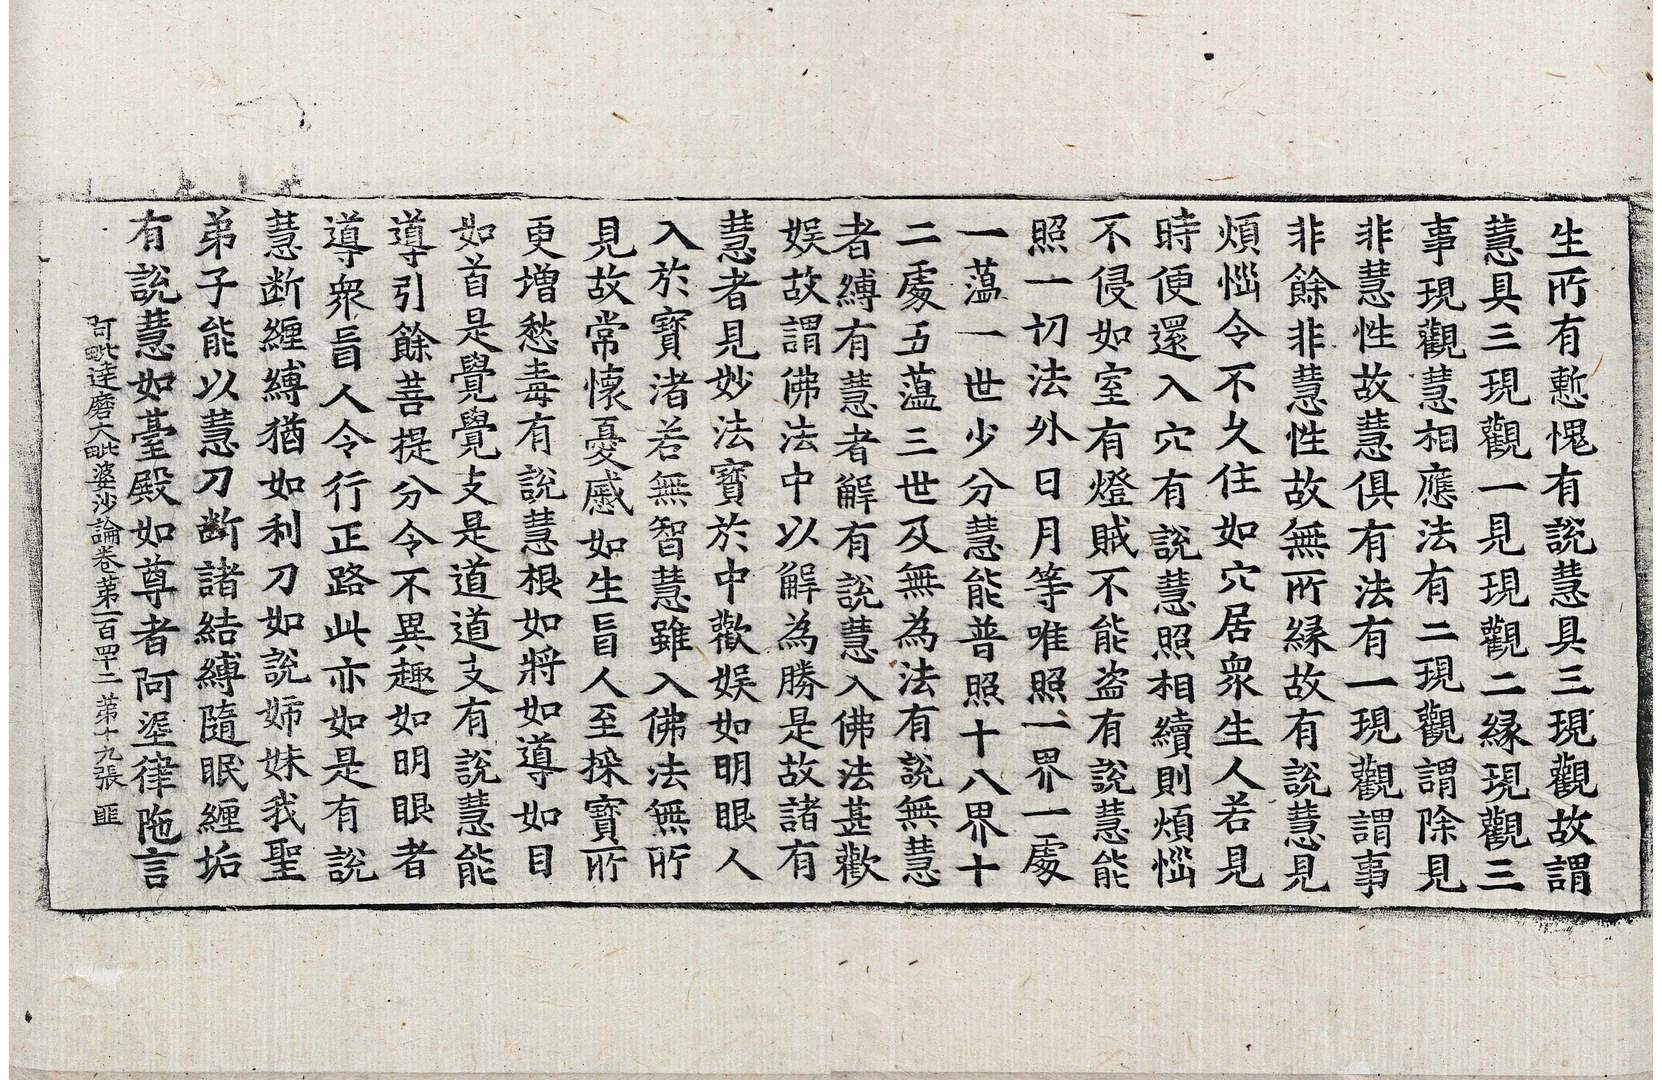 生所有慙愧有說慧具三現觀故謂
慧具三現觀一見現觀二縁現觀三
事現觀慧相應法有二現觀謂除見
非慧性故慧俱有法有一現觀謂事
非餘非慧性故無所縁故有說慧見
煩惱令不久住如穴居衆生人若見
時便還入穴有說慧照相續則煩惱
不侵如室有燈賊不能盜有說慧能
照一切法外日月等唯照一界一處
一蕰一世少分慧能普照十八界十
二處五蕰三世及無為法有說無慧
者縛有慧者解有說慧入佛法甚歡
娱故謂佛法中以解為勝是故諸有
慧者見妙法寳於中歡娱如明眼人
入於寳渚若無智慧雖入佛法無所
見故常懷憂慼如生盲人至採寳所
更增愁毒有說慧根如將如導如目
如首是覺覺支是道道支有說慧能
導引餘菩提分令不異趣如明眼者
導衆盲人令行正路此亦如是有說
慧斷纏縛猶如利刀如說姉妹我聖
弟子能以慧刀斷諸結縛隨眠纏垢
有說慧如臺殿如尊者阿埿律陁言
阿毗達磨大毗婆沙論卷第一百四十二 第十九張 匪